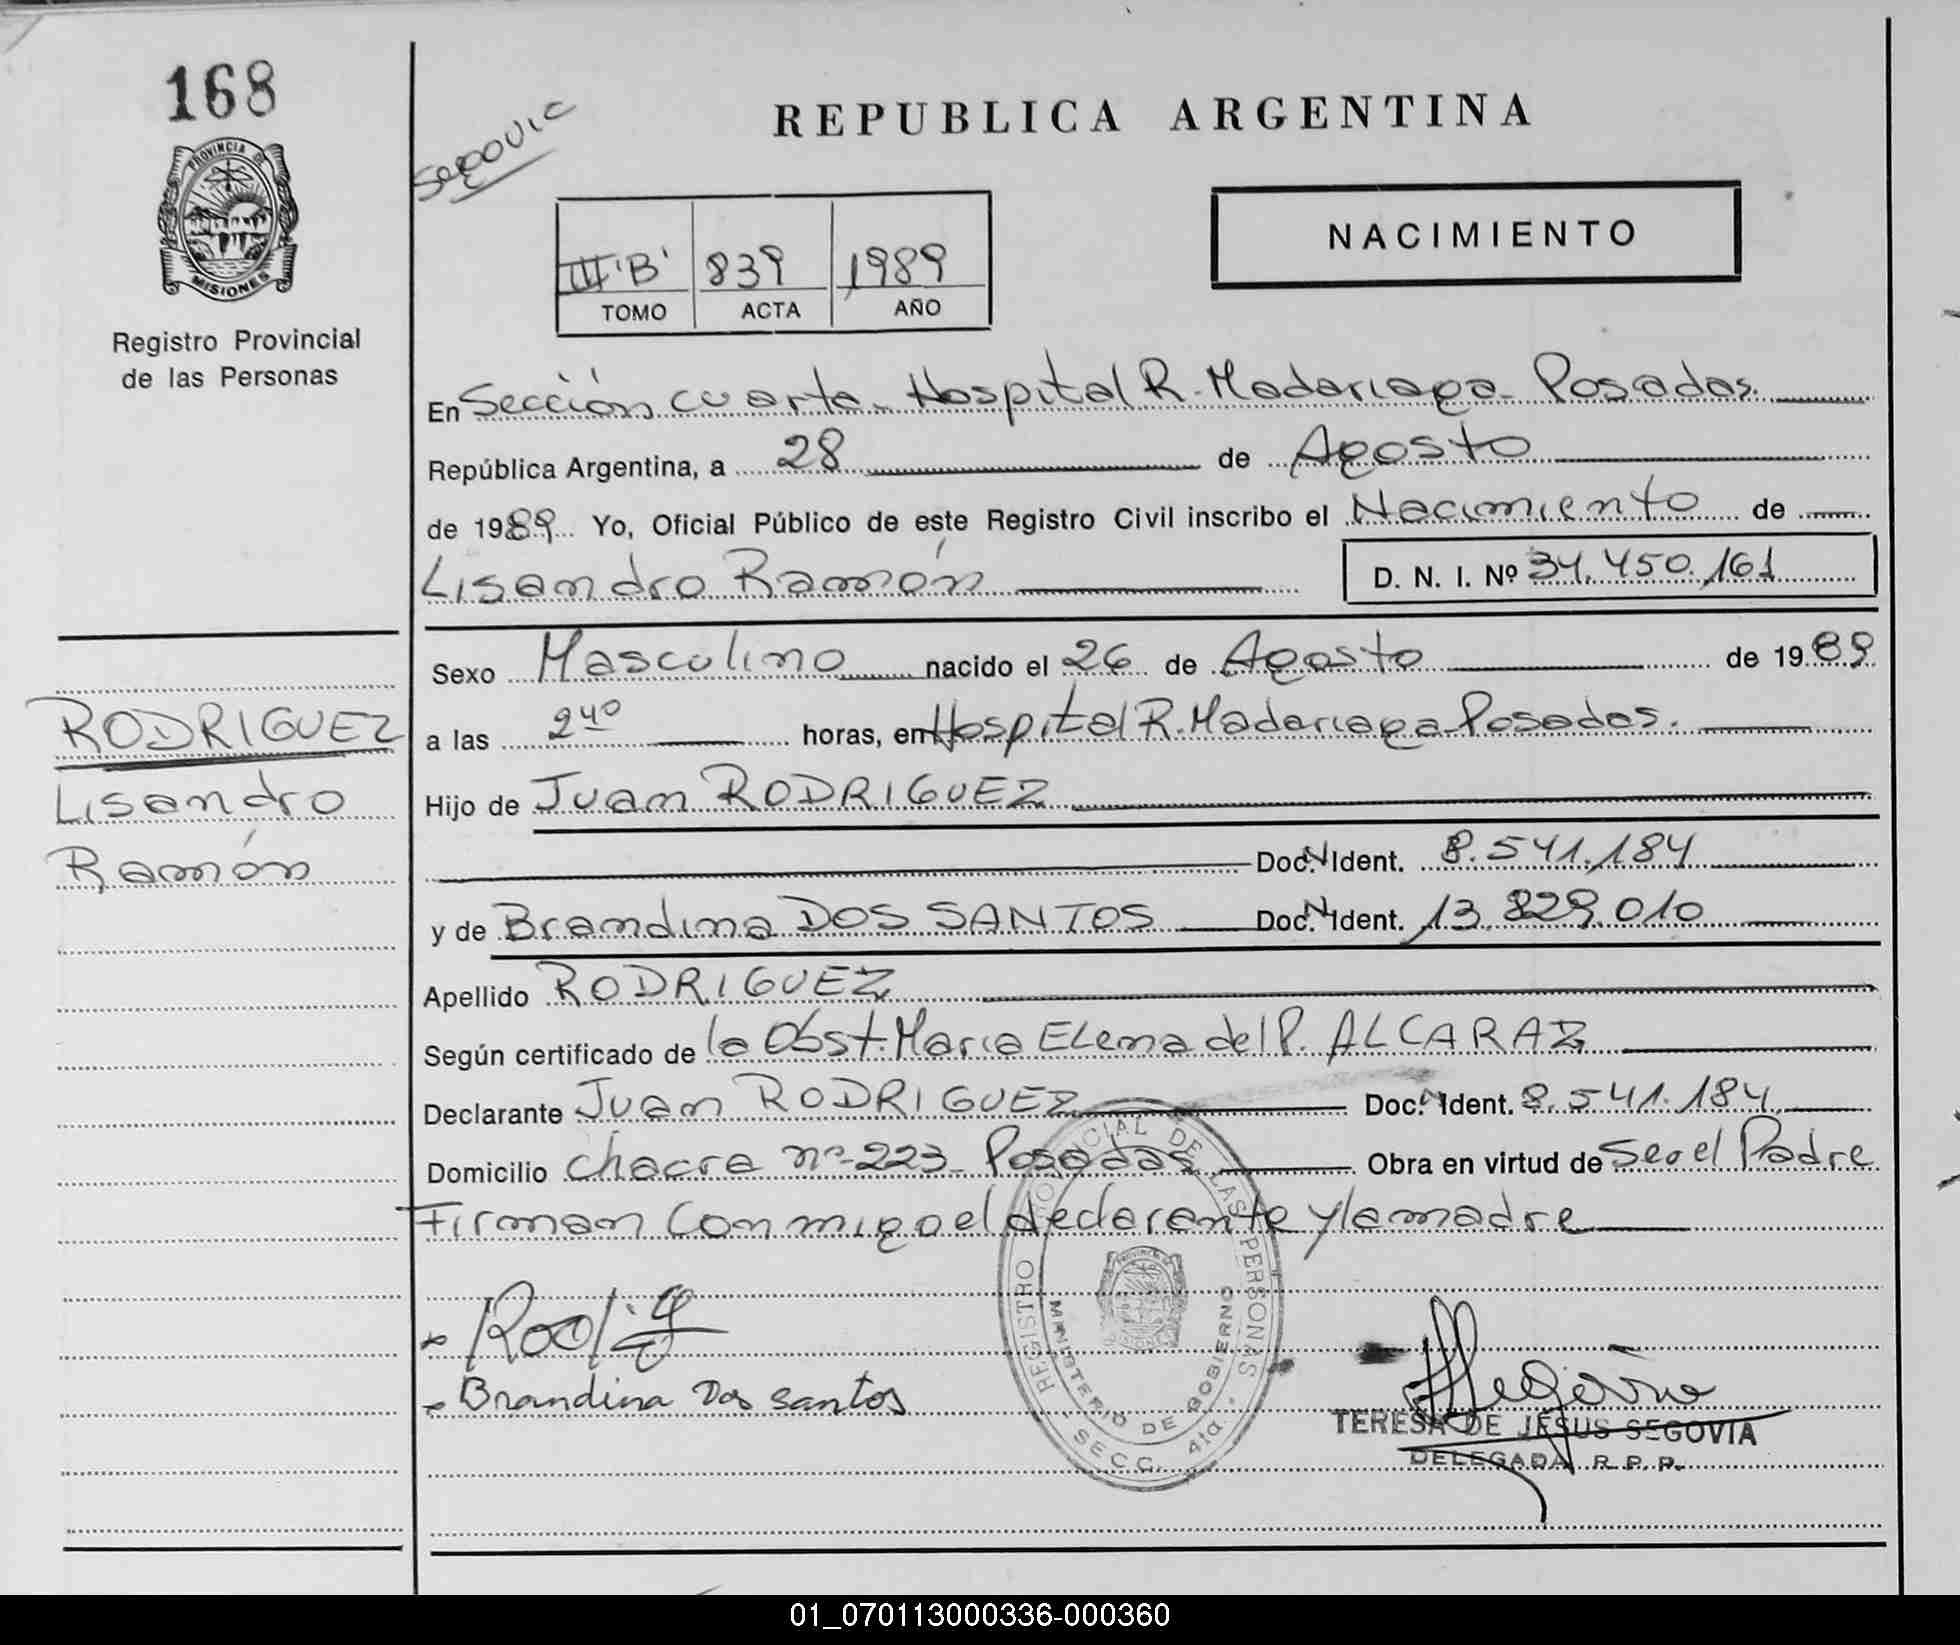 168
PROVINCIA DE
MISIONES
Registro Provincial
de las Personas
RODRIGUEZ
Lisandro
Ramón
Segovic
REPUBLICA ARGENTINA
III 'B' 839 1989
TOMO ACTA AÑO
NACIMIENTO
En Sección cuarta. Hospital R. Madariaga. Posadas.
República Argentina, a 28 de Agosto
de 1989 Yo, Oficial Público de este Registro Civil inscribo el Nacimiento de
Lisandro Ramón D. N. I. Nº 34.450.161
Sexo Masculino nacido el 26 de Agosto de 1989
a las 2 40 horas, en Hospital R. Madariaga Posadas.
Hijo de Juan RODRIGUEZ
Doc. N Ident. 8.541.184
y de Brandina DOS SANTOS Doc. N Ident. 13.829.010
Apellido RODRIGUEZ
Según certificado de la Obst. Maria Elena del P. ALCARAZ
Declarante Juan RODRIGUEZ Doc. N Ident. 8.541.184
Domicilio chacra nº 223 Posadas Obra en virtud de Ser el Padre
Firman conmigo el declarante y la madre
REGISTRO PROVINCIAL DE LAS PERSONAS
MINISTERIO DE GOBIERNO
SECC. 4ta.
Brandina Dos santos
TERESA DE JESUS SEGOVIA
DELEGADA R. P. P.
01_070113000336-000360